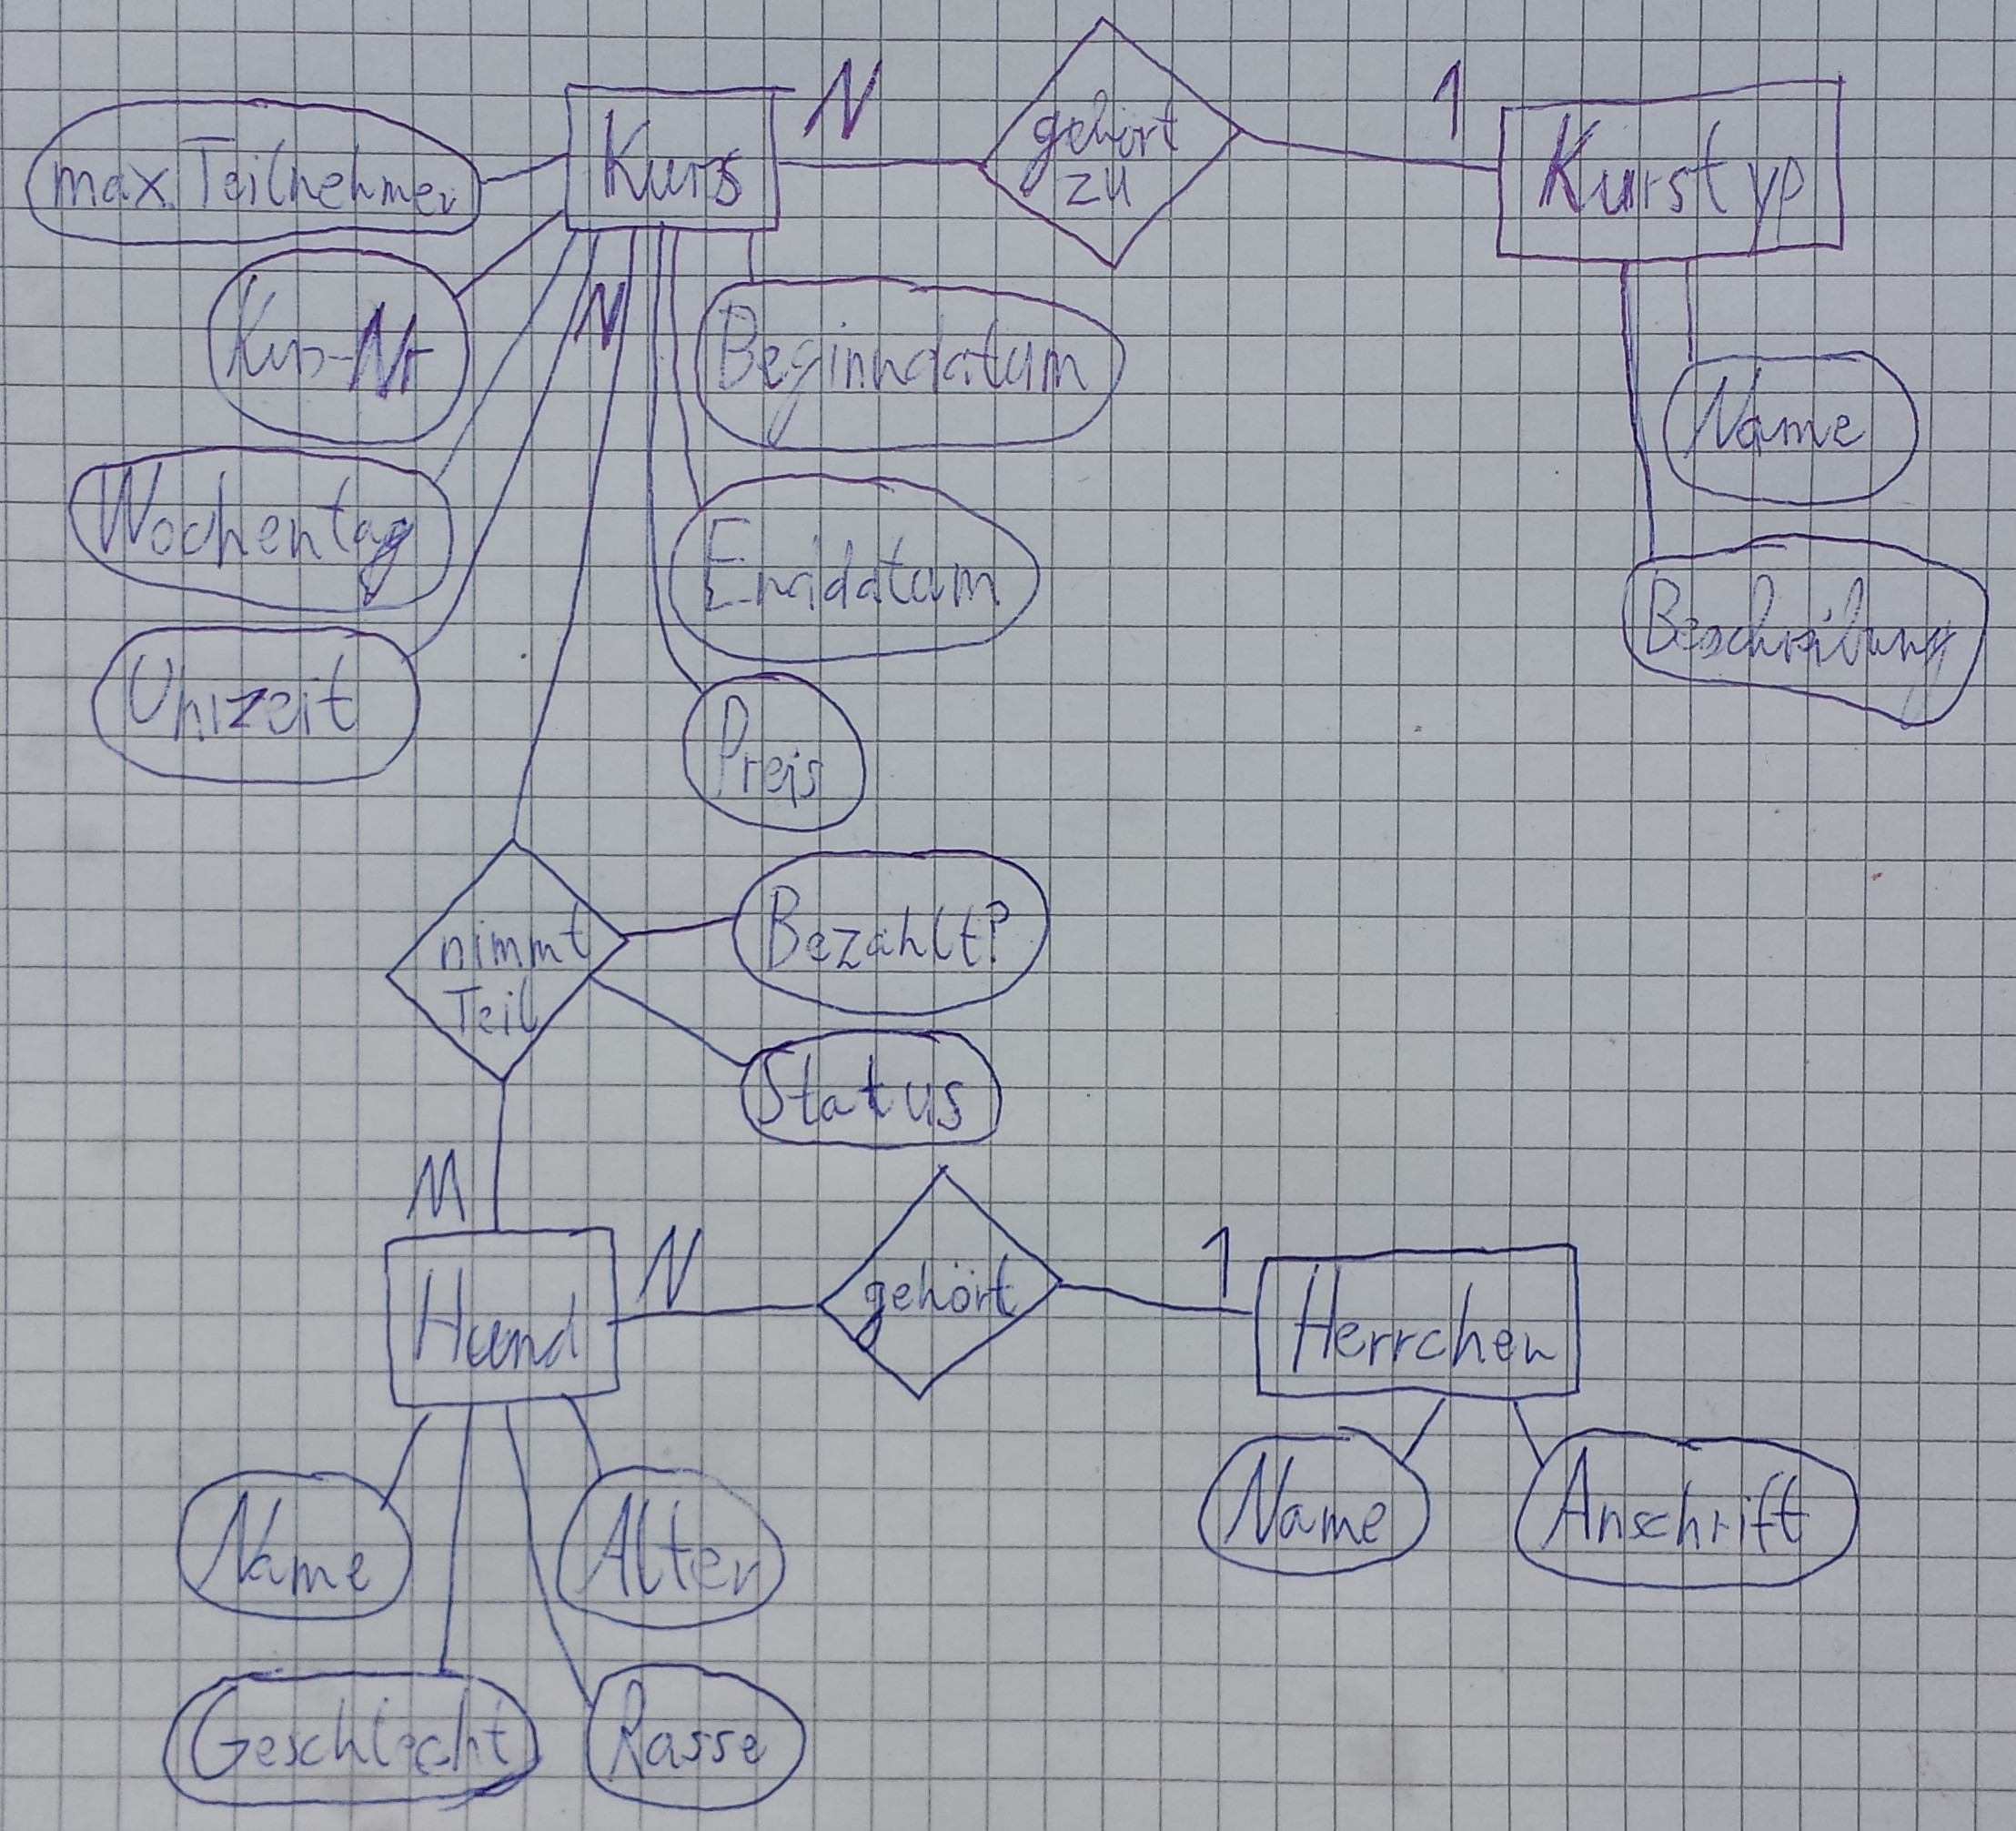 N
1
gehört
zu
max. Teilnehmer
Kurs
Kurstyp
Kurs-Nr
N
Beginndatum
Name
Wochentag
Enddatum
Beschreibung
Uhrzeit
Preis
nimmt
Teil
Bezahlt?
Status
M
N
1
Hund
gehört
Herrchen
Name
Alter
Name
Anschrift
Geschlecht
Rasse